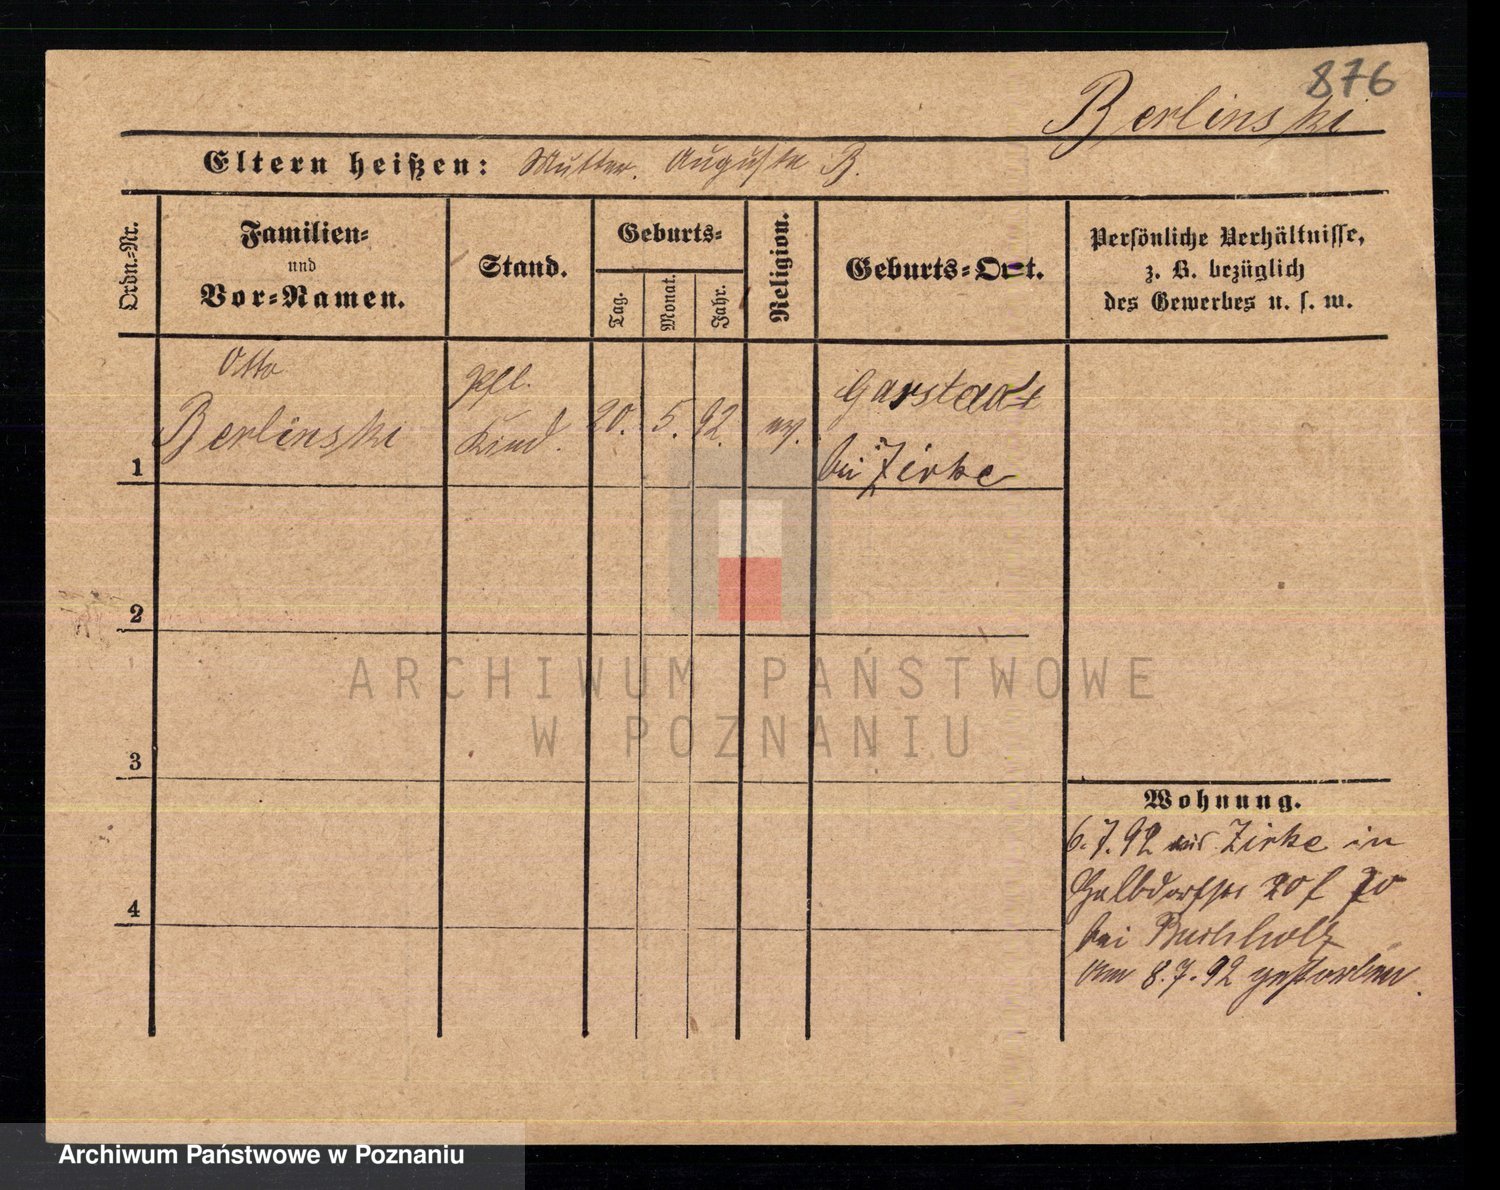 876
Berlinski
Eltern heißen: Mutter. Auguste B.
Ordn.-Nr.
Familien-
und
Vor-Namen.
Stand.
Geburts-
Tag.
Monat.
Jahr.
Religion.
Geburts-Ort.
Persönliche Verhältnisse,
z. B. bezüglich
des Gewerbes u. s. w.
1
Otto
Berlinski
Pfl.
Kind.
20. 5. 92. ev.
Garstadt
bei Zirke
2
3
4
Wohnung.
6.7.92 aus Zirke in
Halbdorfstr
bei Buchholz
am 8.7.92 gestorben.
ARCHIWUM PAŃSTWOWE
W POZNANIU
Archiwum Państwowe w Poznaniu